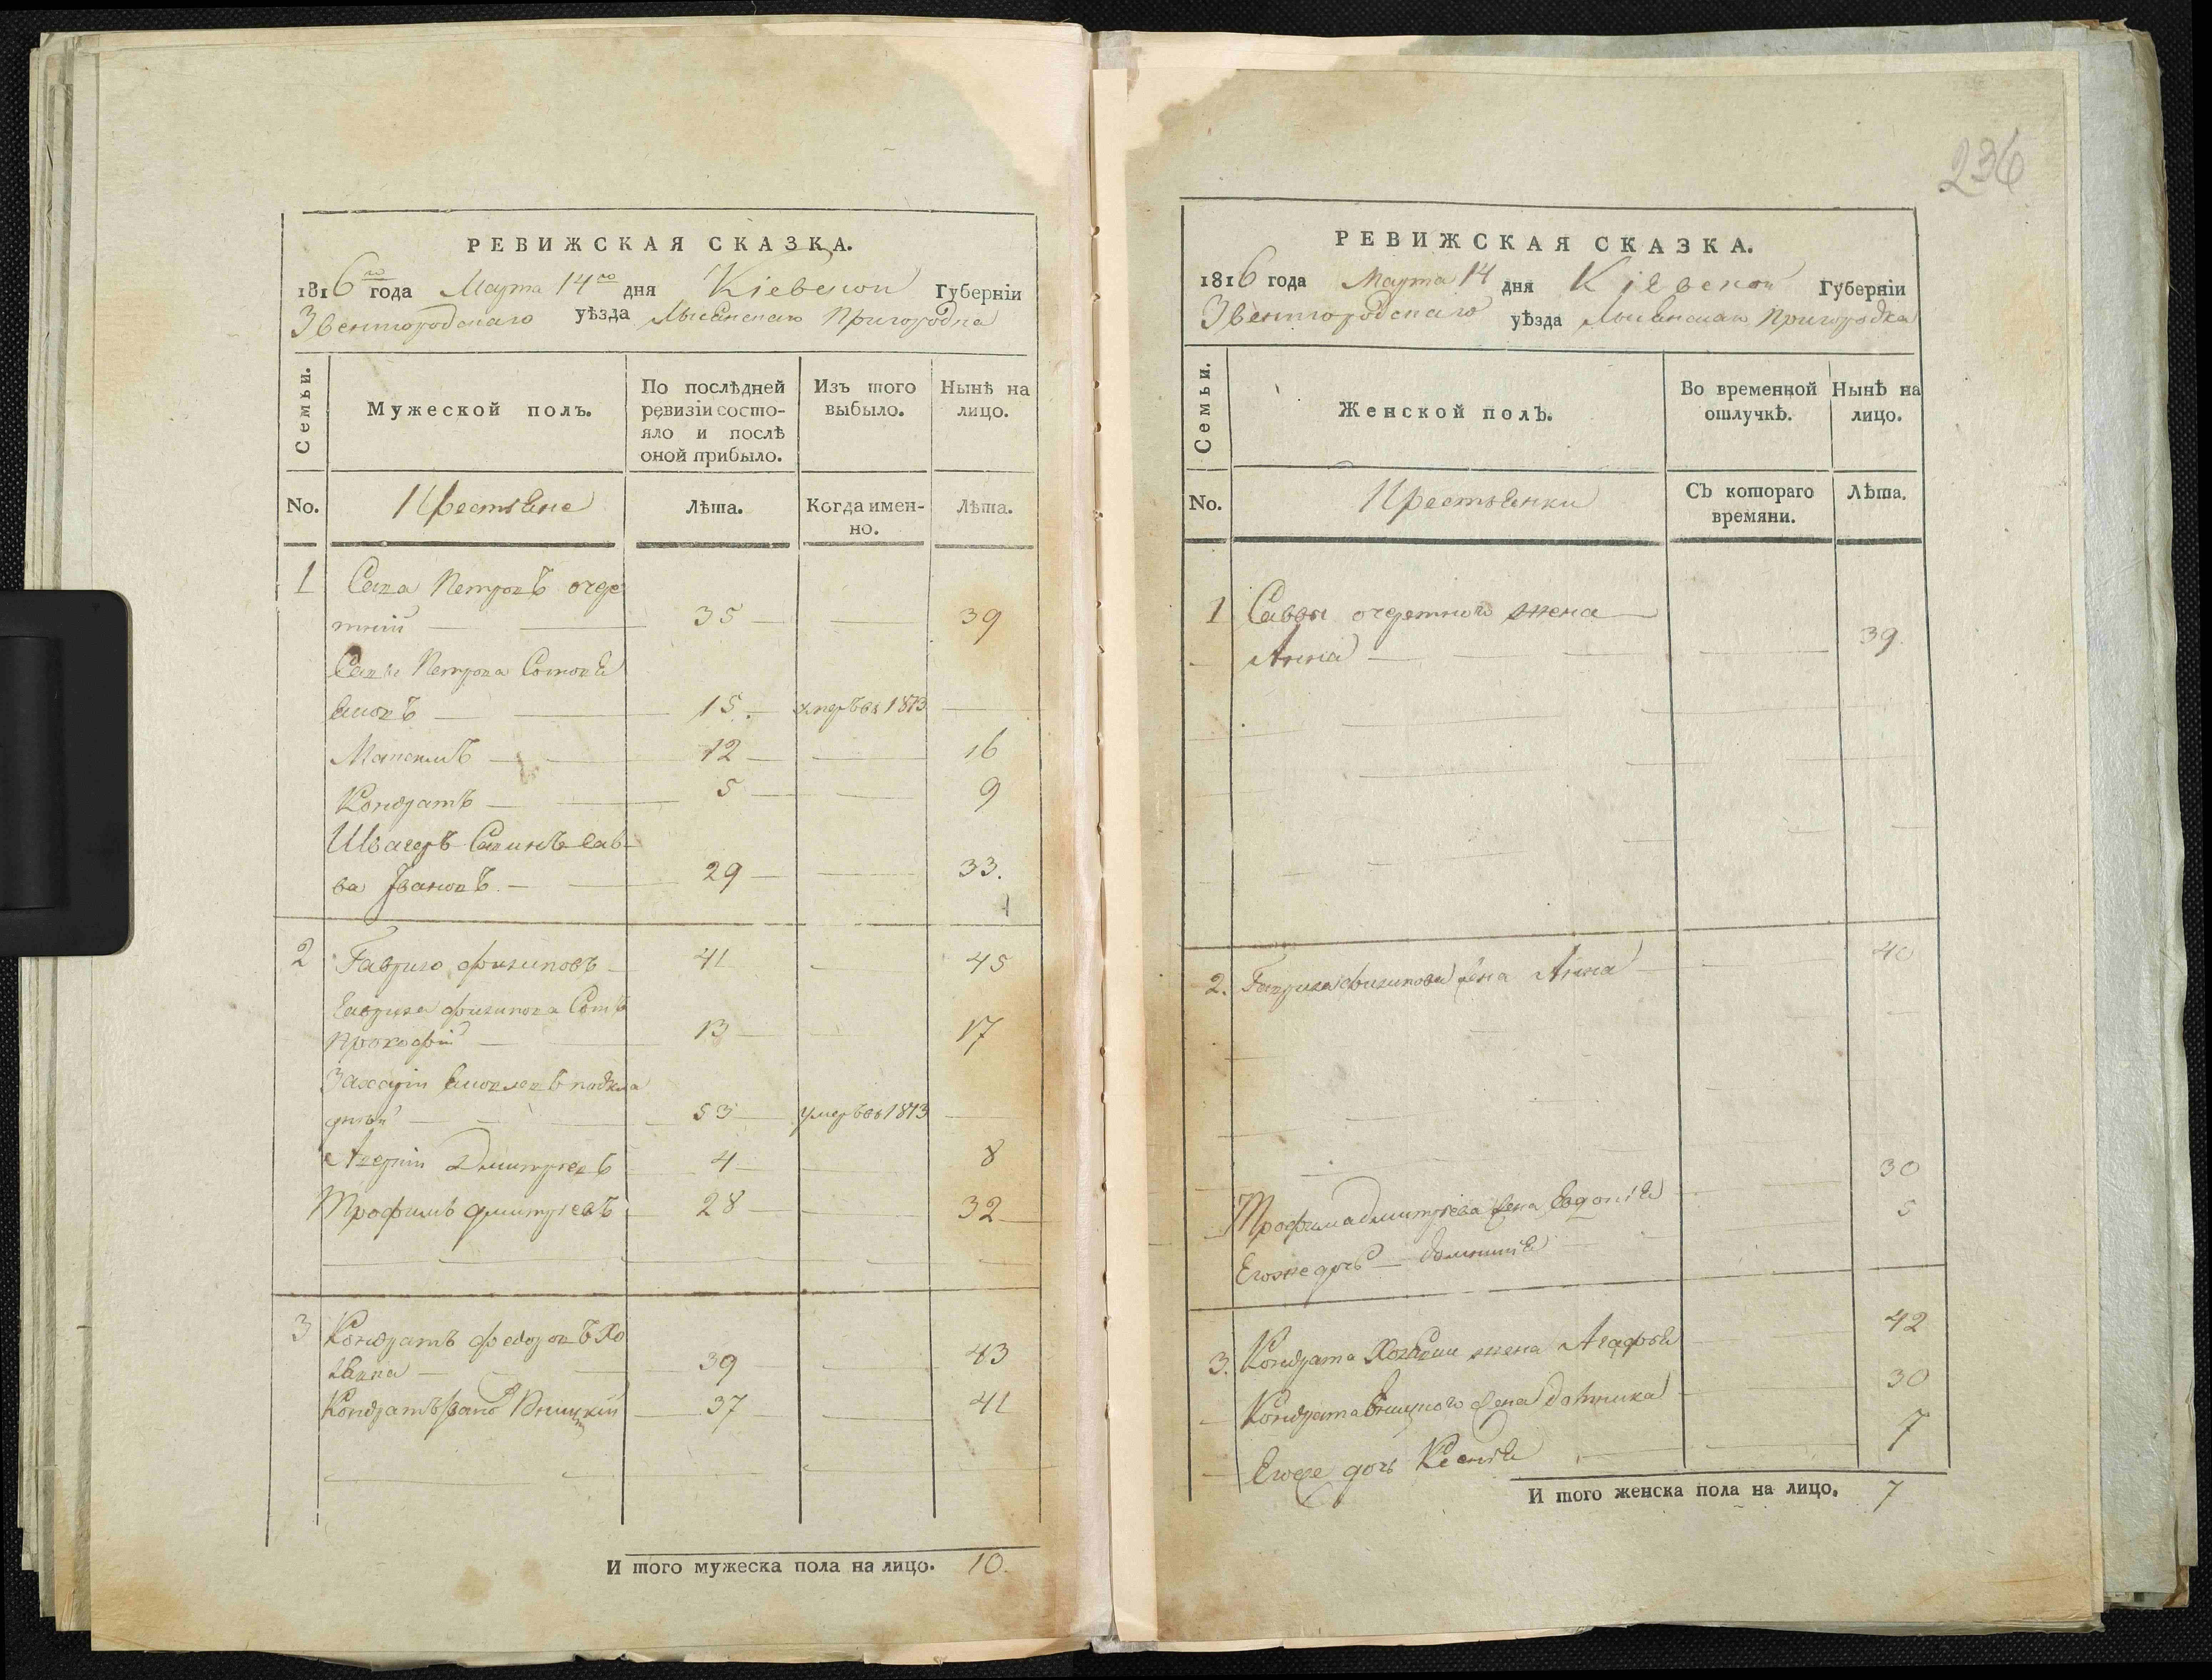 РЕВИЖСКАЯ СКАЗКА.
1816го года Марта 14го дня Кіевской Губерніи
Звенигородскаго уѣзда Лысянскаго Пригородка
Семьи. Мужеской полъ. По послѣдней ревизіи состояло и послѣ оной прибыло. Изъ того выбыло. Нынѣ на лицо.
No. Крестьяне Лѣта. Когда именно. Лѣта.
1 Савва Петровъ очере
тний 35 39
Саввы Петрова Сыновья
15. умеръ въ 1813
12 16
Кондратъ 5 9
Швагеръ Сав
ва Івановъ. 29 33.
2 Гаврило Филиповъ 41 45
Гаврила Филипова Сынъ
Прокофій 13 17
Захарій
53 умеръ въ 1813
Дмитріевъ 4 8
Трофимъ Дмитріевъ 28 32
3 Кондратъ Федоровъ Хо
39 43
Кондратъ 37 41
И того мужеска пола на лицо. 10.
236
РЕВИЖСКАЯ СКАЗКА.
1816 года Марта 14 дня Кіевской Губерніи
Звенигородскаго уѣзда Лысянскаго Пригородка
Семьи. Женской полъ. Во временной отлучкѣ. Нынѣ на лицо.
No. Крестьянки Съ котораго времяни. Лѣта.
1 Саввы очеретного жена
Анна 39.
2. Гаврила Филипова жена Анна 40
Трофима Дмитріева жена Евдокія 30
Егоже дочь Домникія 5
3. Кондрата жена Агафья 42
Кондрата жена 30
Егоже дочь Ксенія 7
И того женска пола на лицо. 7